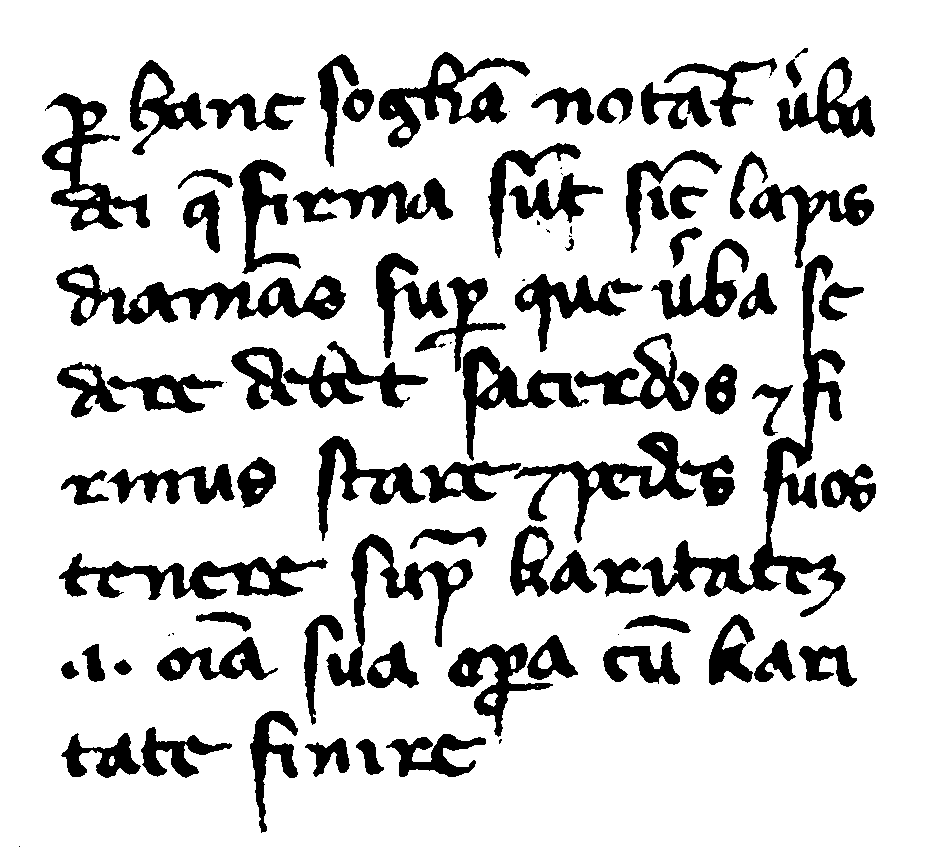 ꝑ hanc sogliā notāt᷑ u͛ba
dei q̄ firma sūt sic̄ lapis
diamās suꝑ que u͛ba se
dere debet sacerdos ⁊ fi
rmus stare ⁊ pedes suos
tenere sup̄ karitateꝫ
.i. oīa sua oꝑa cū kari
tate finire